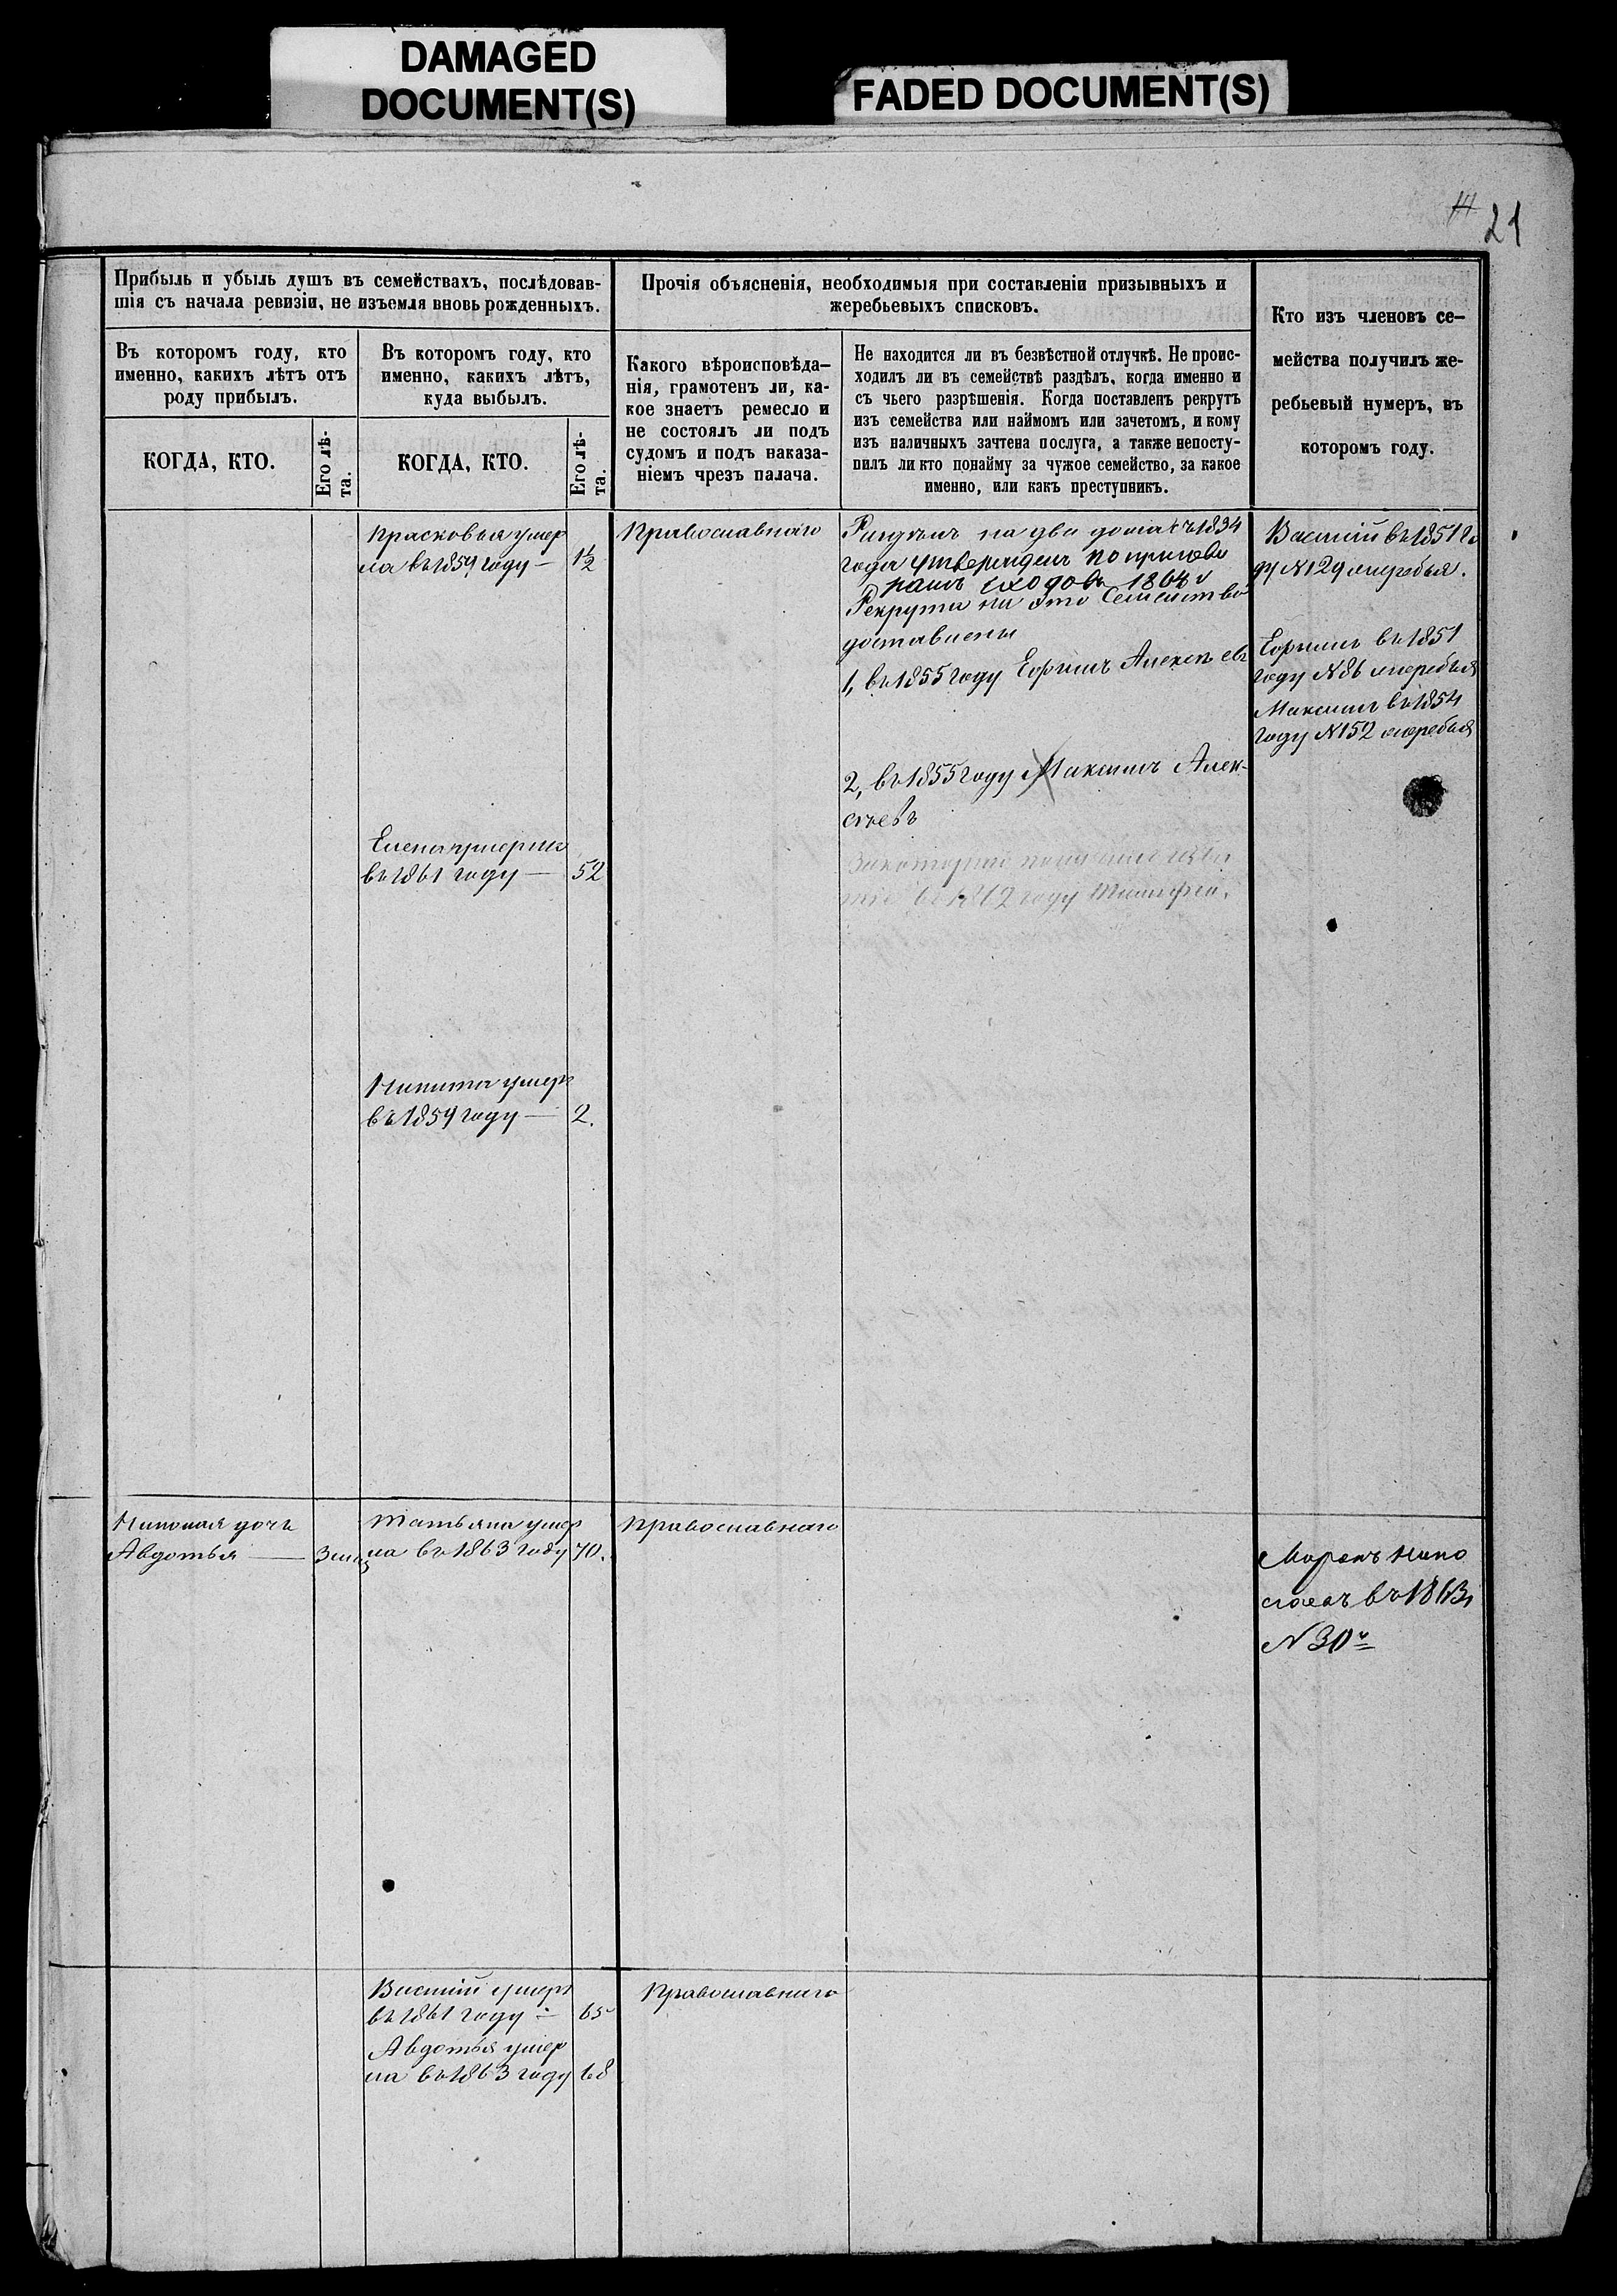 DAMAGED
DOCUMENT(S)
FADED DOCUMENT(S)
21
Прибыль и убыль душъ въ семействахъ, послѣдовав-
шія съ начала ревизіи, не изъемля вновь рожденныхъ.
Въ которомъ году, кто
именно, какихъ лѣтъ отъ
роду прибылъ.
КОГДА, КТО.
Его лѣ-
та.
Въ которомъ году, кто
именно, какихъ лѣтъ,
куда выбылъ.
КОГДА, КТО.
Его лѣ-
та.
Прочія объясненія, необходимыя при составленіи призывныхъ и
жеребьевыхъ списковъ.
Какого вѣроисповѣда-
нія, грамотенъ ли, ка-
кое знаетъ ремесло и
не состоялъ ли подъ
судомъ и подъ наказа-
ніемъ чрезъ палача.
Не находится ли въ безвѣстной отлучкѣ. Не проис-
ходилъ ли въ семействѣ раздѣлъ, когда именно и
съ чьего разрѣшенія. Когда поставленъ рекрутъ
изъ семейства или наймомъ или зачетомъ, и кому
изъ наличныхъ зачтена послуга, а также непосту-
пилъ ли кто понайму за чужое семейство, за какое
именно, или какъ преступникъ.
Кто изъ членовъ се-
мейства получилъ же-
ребьевый нумеръ, въ
которомъ году.
Прасковья умер
ла въ 1859 году — 1½
Православнаго
на два дома 1834
года утвержденъ по пригово
сходовъ 1868
Рекруты на это Семейство
доставлены
1, въ 1855 году Ефимъ Алексѣевъ
2, въ 1855 году Максимъ Алек-
сѣевъ
въ 1812 году
Василій въ 1851 го
ду №129 жеребья.
Ефимъ въ 1851
году №86 жеребья
Максимъ въ 1854
году №152 жеребья
Елена умерла
въ 1861 году — 52
Никита умеръ
въ 1859 году — 2.
Николая дочь
Авдотья — 3
Татьяна умер
ла въ 1863 году 70.
Православнаго
въ 1863
№30
Василій умеръ
въ 1861 году — 65
Авдотья умер
ла въ 1863 году 68
Православнаго